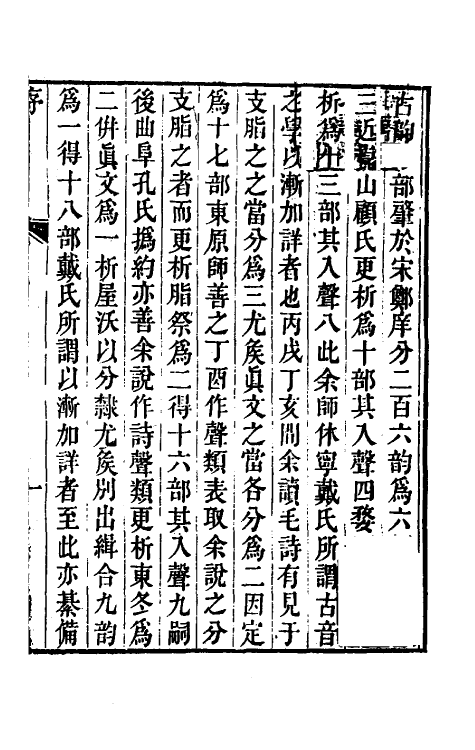 古韵 部肇於宋鄭庠分二百六韵爲六
三近崑山顧氏更析爲十部其入聲四婺
析爲十三部其入聲八此余師休寧戴氏所謂古音
之學以漸加詳者也丙戌丁亥間余讀毛詩有見于
支脂之之當分爲三尤矦眞文之當各分爲二因定
爲十七部東原師善之丁酉作聲類表取余說之分
支脂之者而更析脂祭爲二得十六部其入聲九嗣
後曲阜孔氏撝約亦善余說作詩聲類更析東冬爲
二倂眞文爲一析屋沃以分隸尤矦別出緝合九韵
爲一得十八部戴氏所謂以漸加詳者至此亦綦備
序
一